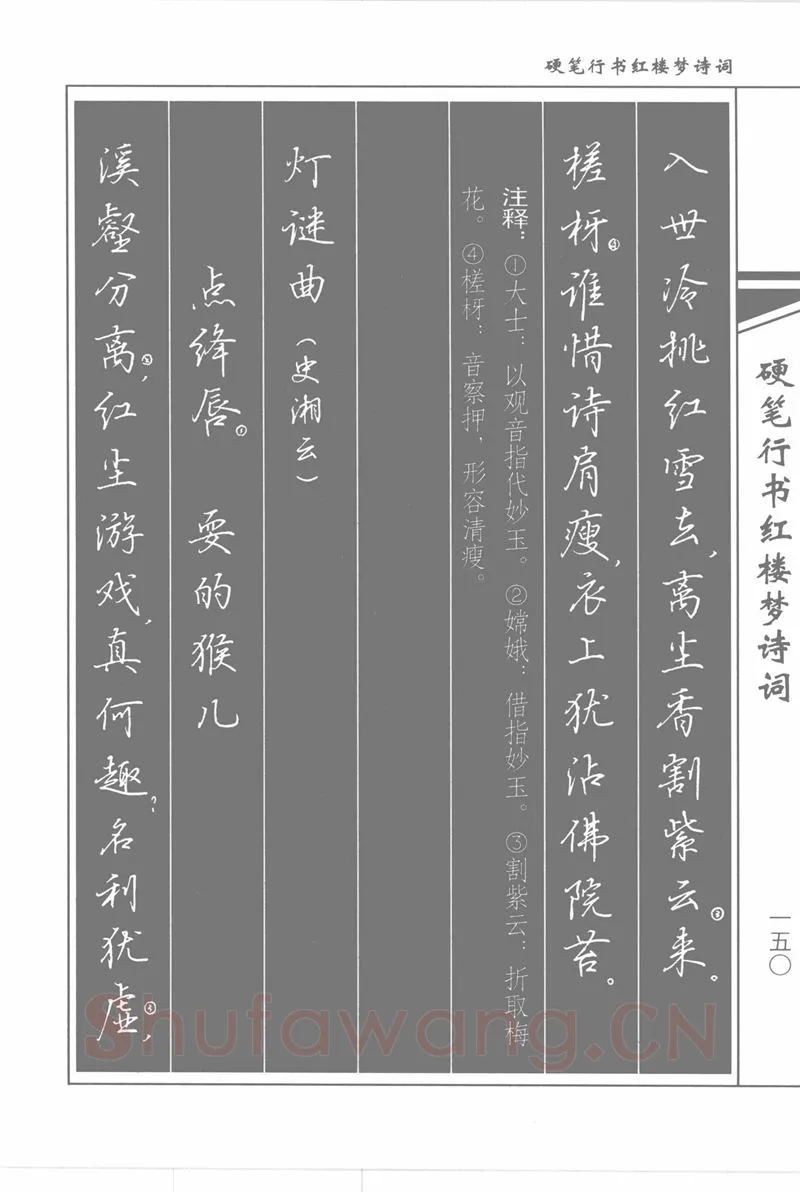 硬笔行书红楼梦诗词
入世冷挑红雪去，离尘香割紫云③来。
槎枒④谁惜诗肩瘦，衣上犹沾佛院苔。
注释：①大士：以观音指代妙玉。②嫦娥：借指妙玉。③割紫云：折取梅
花。④槎枒：音察押，形容清瘦。
灯谜曲（史湘云）
点绛唇①　耍的猴儿
溪壑分离②，红尘游戏，真何趣？名利犹虚③，
硬笔行书红楼梦诗词
一五〇
Shufawang.CN